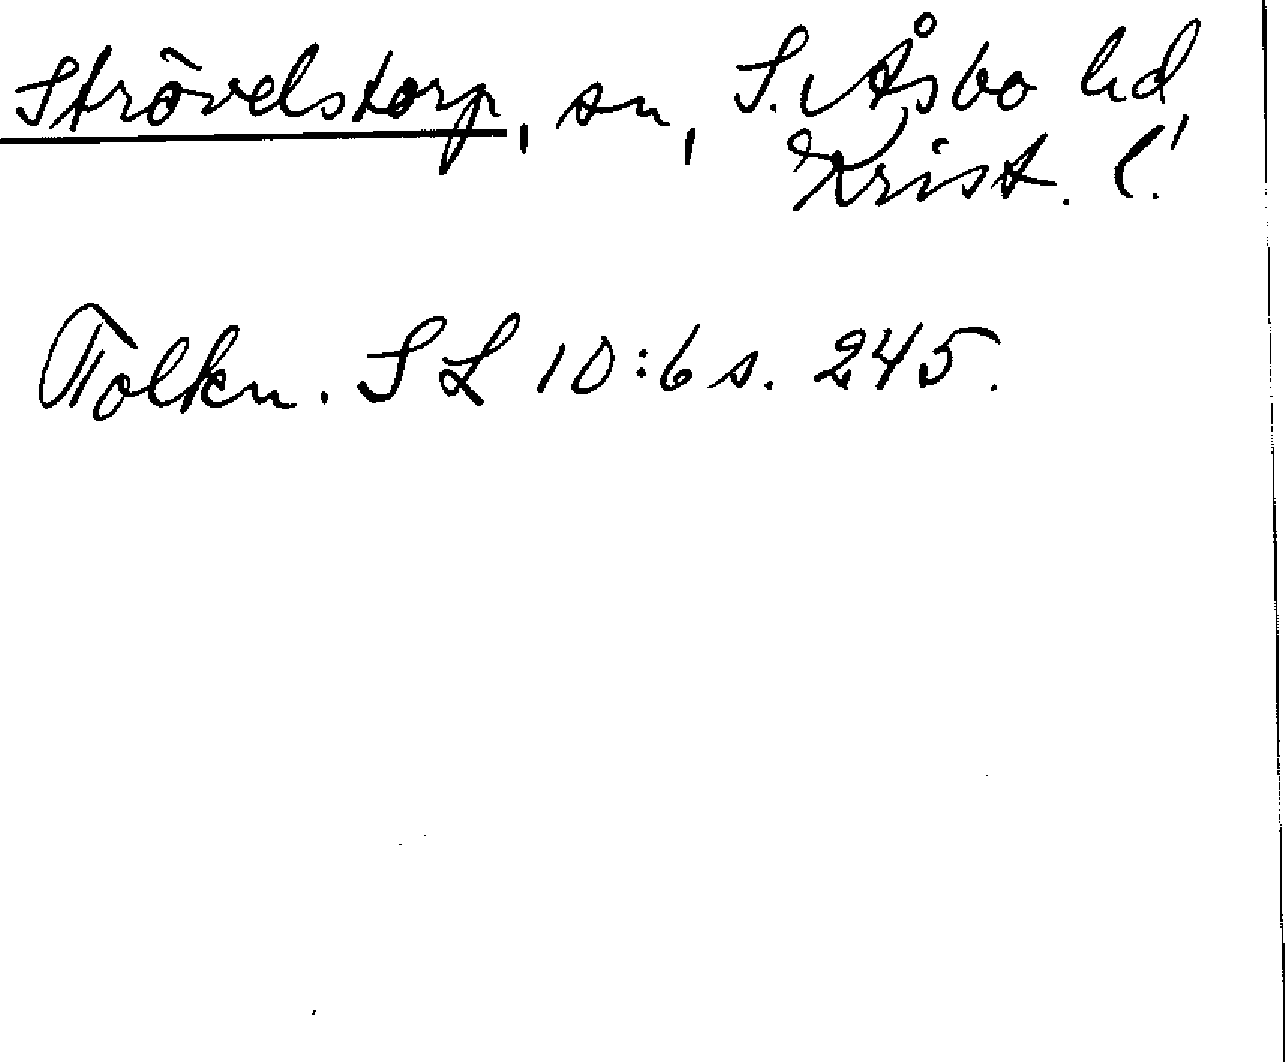 Strövelstorp, sn, S. Åsbo hd,
Krist. l.
Tolkn. SL 10:6 s. 245.